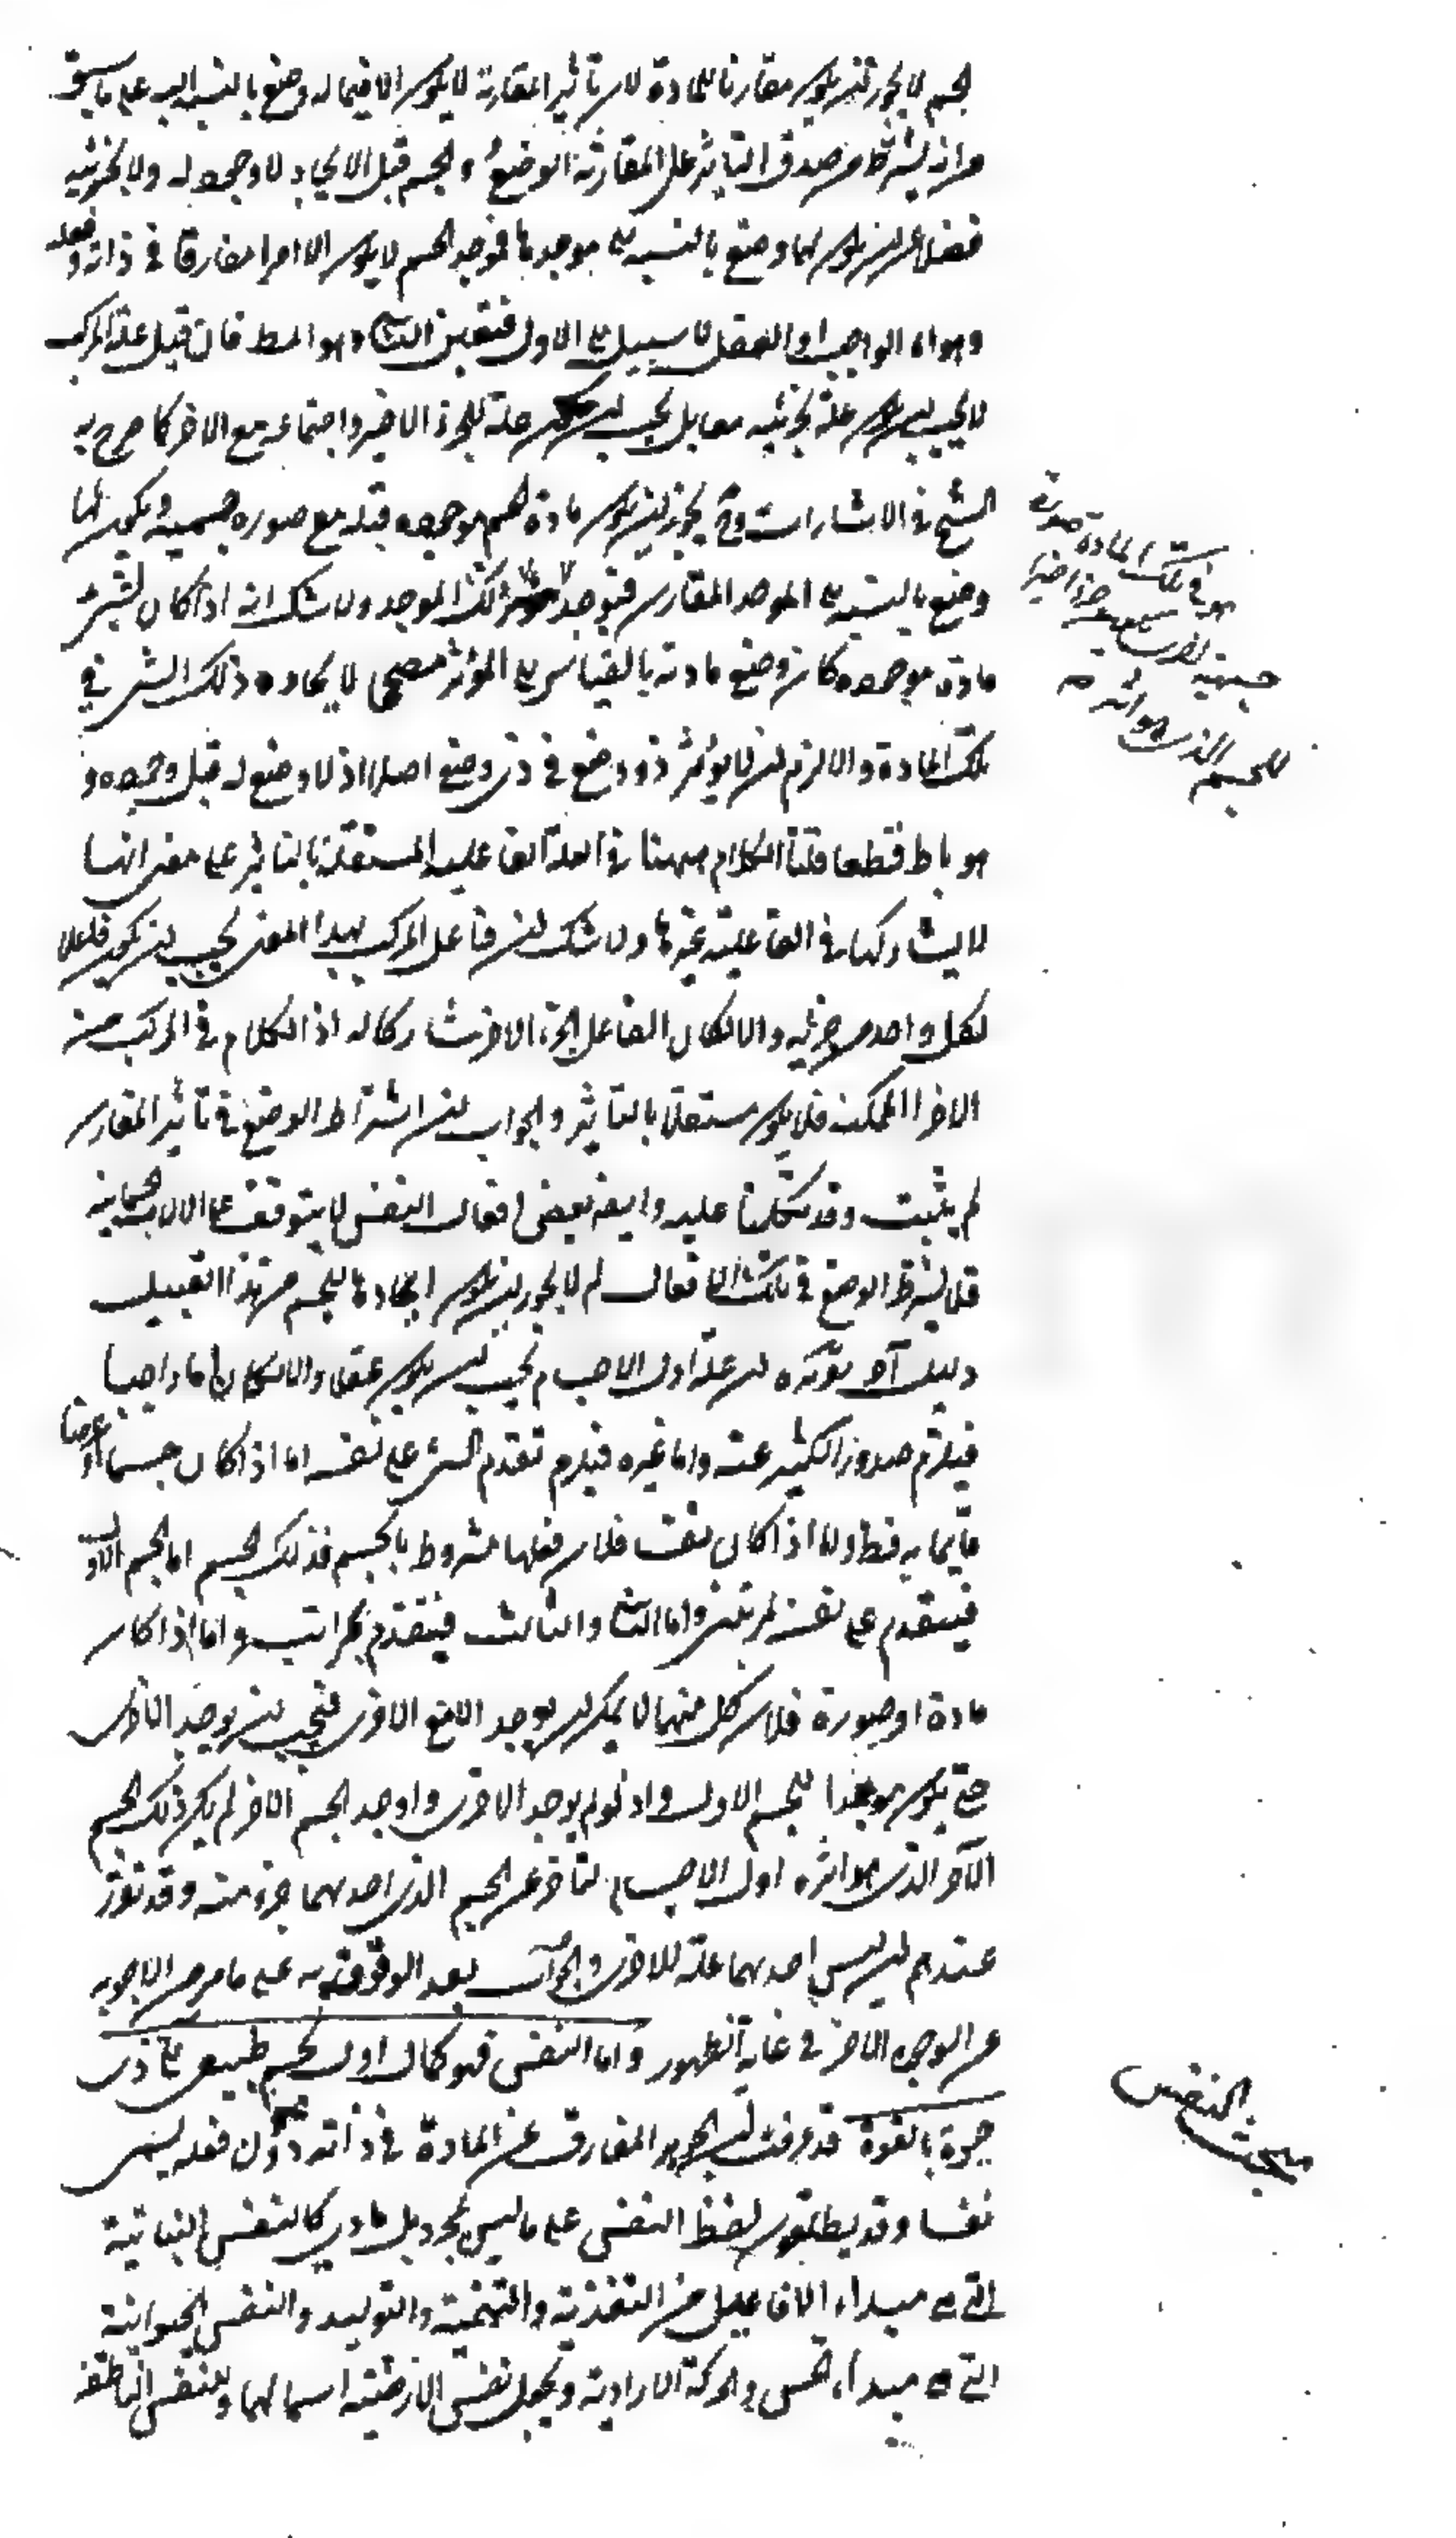 لجسم لا يجوز ان يكون مقارنا للمادة لان تأثير المقارن لا يكون الا فيما له وضع بالنسبة اليه على ما سبق
من انه يشترط في صدق التأثير على المقارن الوضع والجسم قبل الايجاد لا وجود له ولا لجزئيه
فضلا عن ان يكون لهما وضع بالنسبة الى موجدهما فموجد الجسم لا يكون الا امرا مفارقا في ذاته وفعله
وهو اما الواجب او العقل لا سبيل الى الاول فتعين الثاني وهو المط فان قيل علة المركب
لا يجب ان يكون علة لجزئيه معا بل يجب ان يكون علة للجزء الاخير واجتماعه مع الاخر كما صرح به
الشيخ في الاشارات وح يجوز ان يكون مادة الجسم موجودة قبله مع صورة جسمية ويكون لها
وضع بالنسبة الى الموجد المقارن فتوجد ذلك الموجد ولا شك انه اذا كان لشئ
مادة موجودة كان وضع مادته بالقياس الى المؤثر مصححا لايجاده ذلك الشئ في
تلك المادة والا لزم ان لا يؤثر ذو وضع في ذي وضع اصلا اذ لا وضع له قبل وجوده و
هو باط قطعا قلنا الكلام ههنا في العلة الفاعلية المستقلة بالتاثير على معنى انها
لا يشاركها في الفاعلية غيرها ولا شك ان فاعل المركب بهذا المعنى يجب ان يكون فاعلا
لكل واحد من جزئيه والا لكان الفاعل الجزء الاخر مشاركا له اذ الكلام في المركب من
الاجزا الممكنة فلا يكون مستقلا بالتاثير والجواب ان اشتراط الوضع في تأثير المقارن
لم يثبت وقد تكلمنا عليه وايضا بعض افعال النفس لا يتوقف على الالات الجسمانية
فلا يشترط الوضع في تلك الافعال لم لا يجوز ان يكون ايجادها للجسم من هذا القبيل
دليل آخر تقريره ان علة اول الاجسام يجب ان يكون عقلا والا لكان اما واجبا
فيلزم صدور الكثير عنه واما غيره فيلزم تقدم الشئ على نفسه اما اذا كان جسما او عرضا
قائما به فظ واما اذا كان نفسا فلان فعلها مشروط بالجسم فذلك الجسم اما الجسم الاول
فيتقدم على نفسه بمرتبتين واما الثاني والثالث فيتقدم بمراتب واما اذا كان
مادة او صورة فلان كل منهما لا يمكن ان يوجد الا مع الاخرى فيجب ان يوجد الاخرى
حتى يكون موجدا للجسم الاول واذ لو لم يوجد الاخرى واوجد الجسم الاخر لم يكن ذلك الجسم
الآخر الذي هو اثره اول الاجسام لتاخره عن الجسم الذي احدهما جزء منه وقد تقرر
عندهم ان ليس احدهما علة للاخرى والجواب بعد الوقوف على ما مر من الاجوبة
عن الوجوه الاخر في غاية الظهور واما النفس فهو كمال اول لجسم طبيعي آلي ذي
حيوة بالقوة قد عرفت ان الجوهر المفارق عن المادة في ذاته دون فعله يسمى
نفسا وقد يطلقون لفظ النفس على ما ليس بمجرد بل مادي كالنفس النباتية
التي هي مبداء الافاعيل من التغذية والتنمية والتوليد والنفس الحيوانية
التي هي مبداء الحس والحركة الارادية ويجعل نفس الارضية اسما لهما وللنفس الناطقة
هو في تلك المادة صورة
جسمية
للجسم الذي هو اثره
مبحث النفس